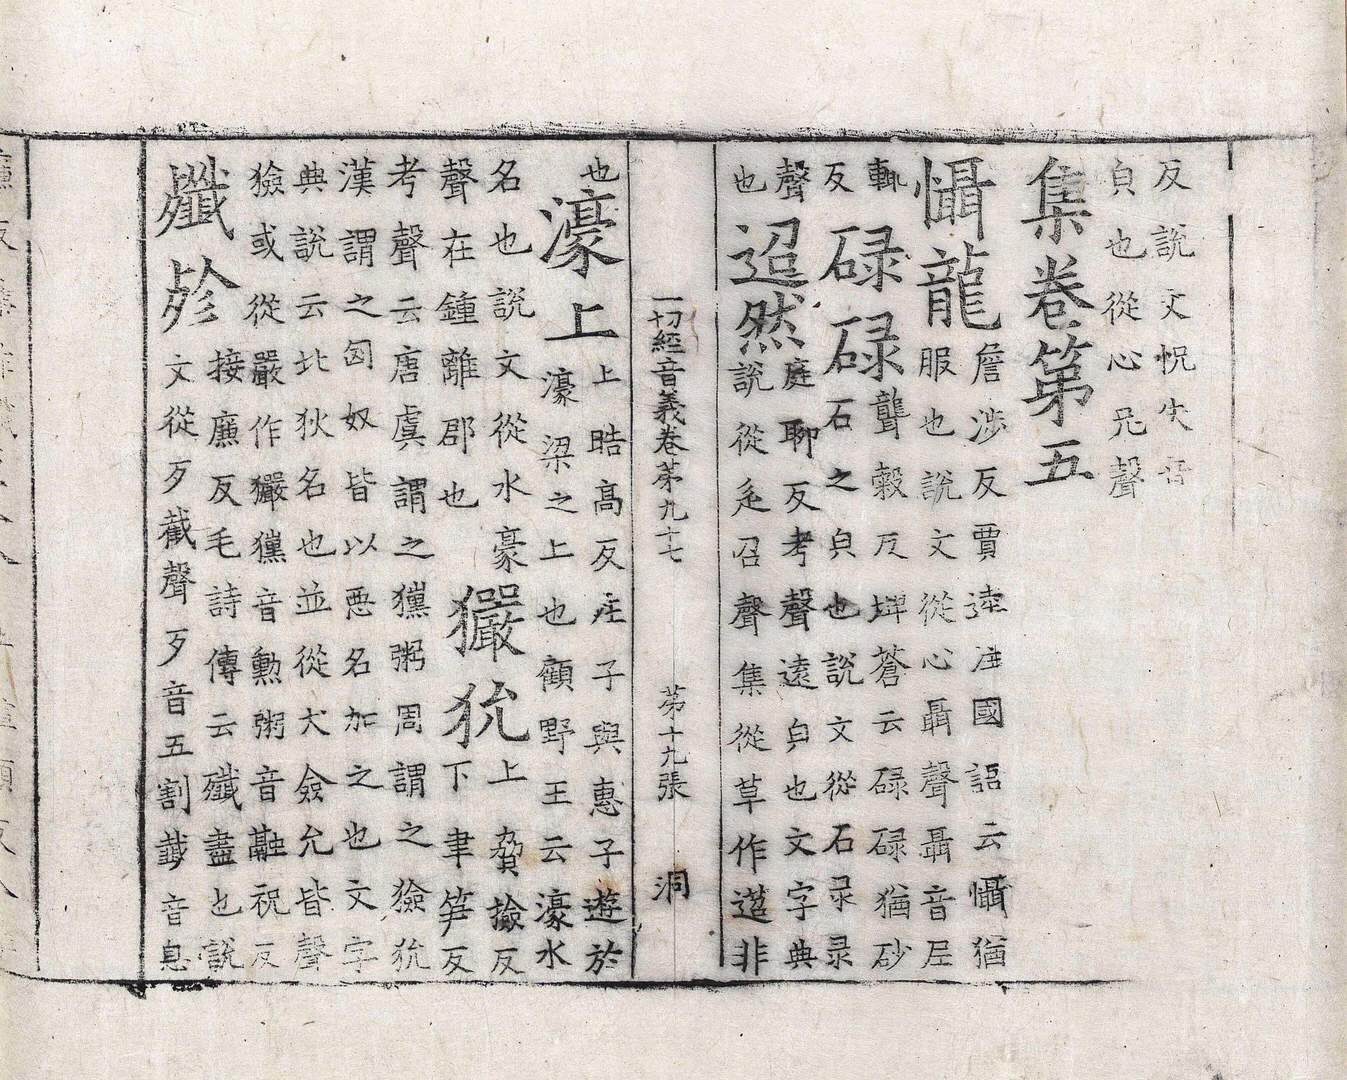 反說文怳失音
皃也從心兄聲
集卷第五
懾龍詹涉反賈逵注國語云懾猶
服也說文從心聶聲聶音尼
輒反碌碌聾穀反埤蒼云碌碌猶砂
石之皃也說文從石彔彔
聲也迢然庭聊反考聲遠皃也文字典
說從辵召聲集從草作蓫非
也
一切經音義卷第九十七 第十九張 洞
濠上上晧高反庄子與惠子遊於
濠梁之上也顧野王云濠水
名也說文從水豪
聲在鍾離郡也
玁狁上䝱撿反
下聿笋反
考聲云唐虞謂之獯粥周謂之獫狁
漢謂之匈奴皆以悪名加之也文字
典說云北狄名也並從犬僉允皆聲
獫或從嚴作玁獯音勳粥音融祝反
殲殄接廉反毛詩傳云殲盡也說
文從歹韱聲歹音五割韱音息